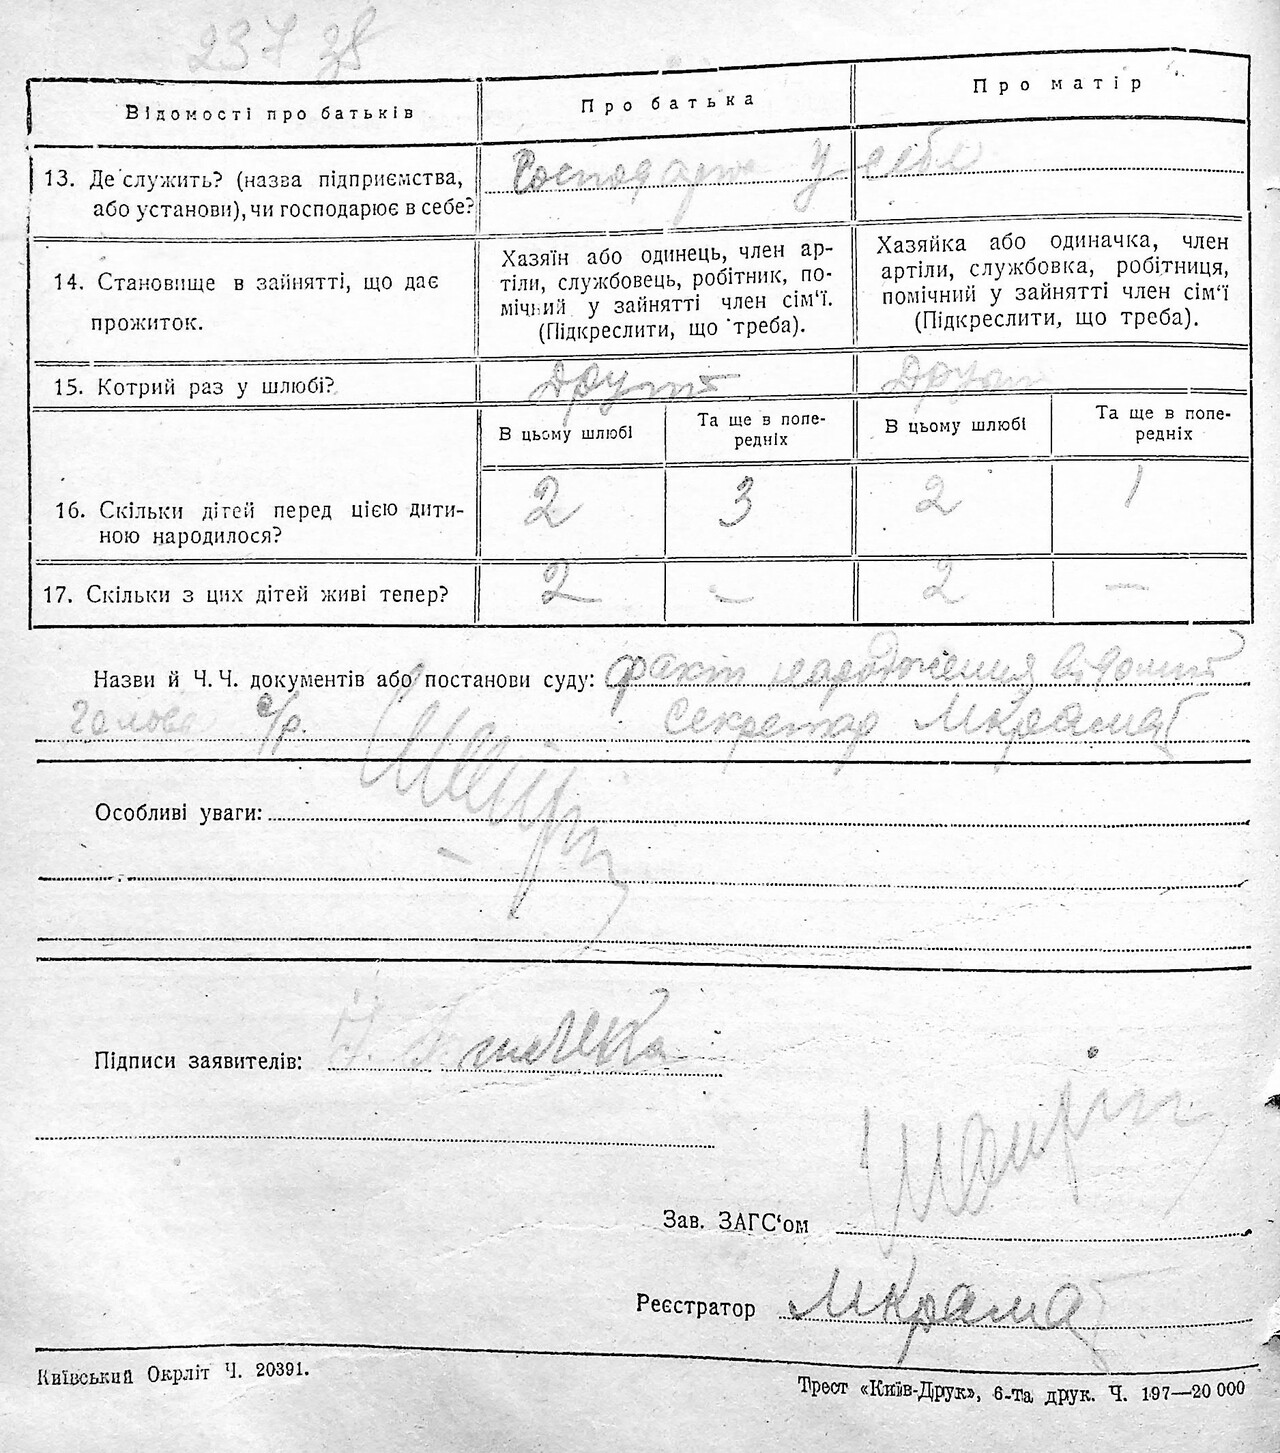 237 зв
Відомості про батьків
Про батька
Про матір
13. Де служить? (назва підприємства,
або установи), чи господарює в себе?
Господарює у себе
14. Становище в зайнятті, що дає
прожиток.
Хазяїн або одинець, член ар-
тіли, службовець, робітник, по-
мічний у зайнятті член сім'ї.
(Підкреслити, що треба).
Хазяйка або одиначка, член
артіли, службовка, робітниця,
помічний у зайнятті член сім'ї
(Підкреслити, що треба).
15. Котрий раз у шлюбі?
Другий
В цьому шлюбі
Та ще в попе-
редніх
В цьому шлюбі
Та ще в попе-
редніх
16. Скільки дітей перед цією дити-
ною народилося?
2 3 2 1
17. Скільки з цих дітей живі тепер?
2 – 2 –
Назви й Ч.Ч. документів або постанови суду: факт народження
Голова с/р. Секретар
Особливі уваги:
Підписи заявителів:
Зав. ЗАГС'ом
Реєстратор
Київський Окрліт Ч. 20391.
Трест «Київ-Друк», 6-та друк. Ч. 197—20 000